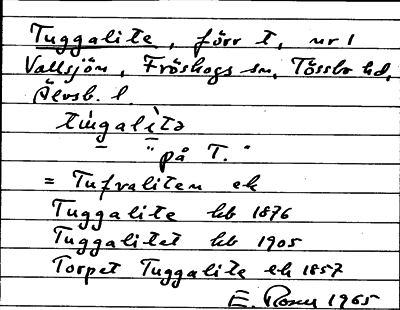 Tuggalite, förr t, nr 1
Vallsjön, Fröskogs sn, Tössbo hd,
Älvsb. l.
tùŋgalìtə
"på T."
= Tufvaliten ek
Tuggalite hb 1876
Tuggalitet hb 1905
Torpet Tuggalite ek 1857
E. Rosen 1965